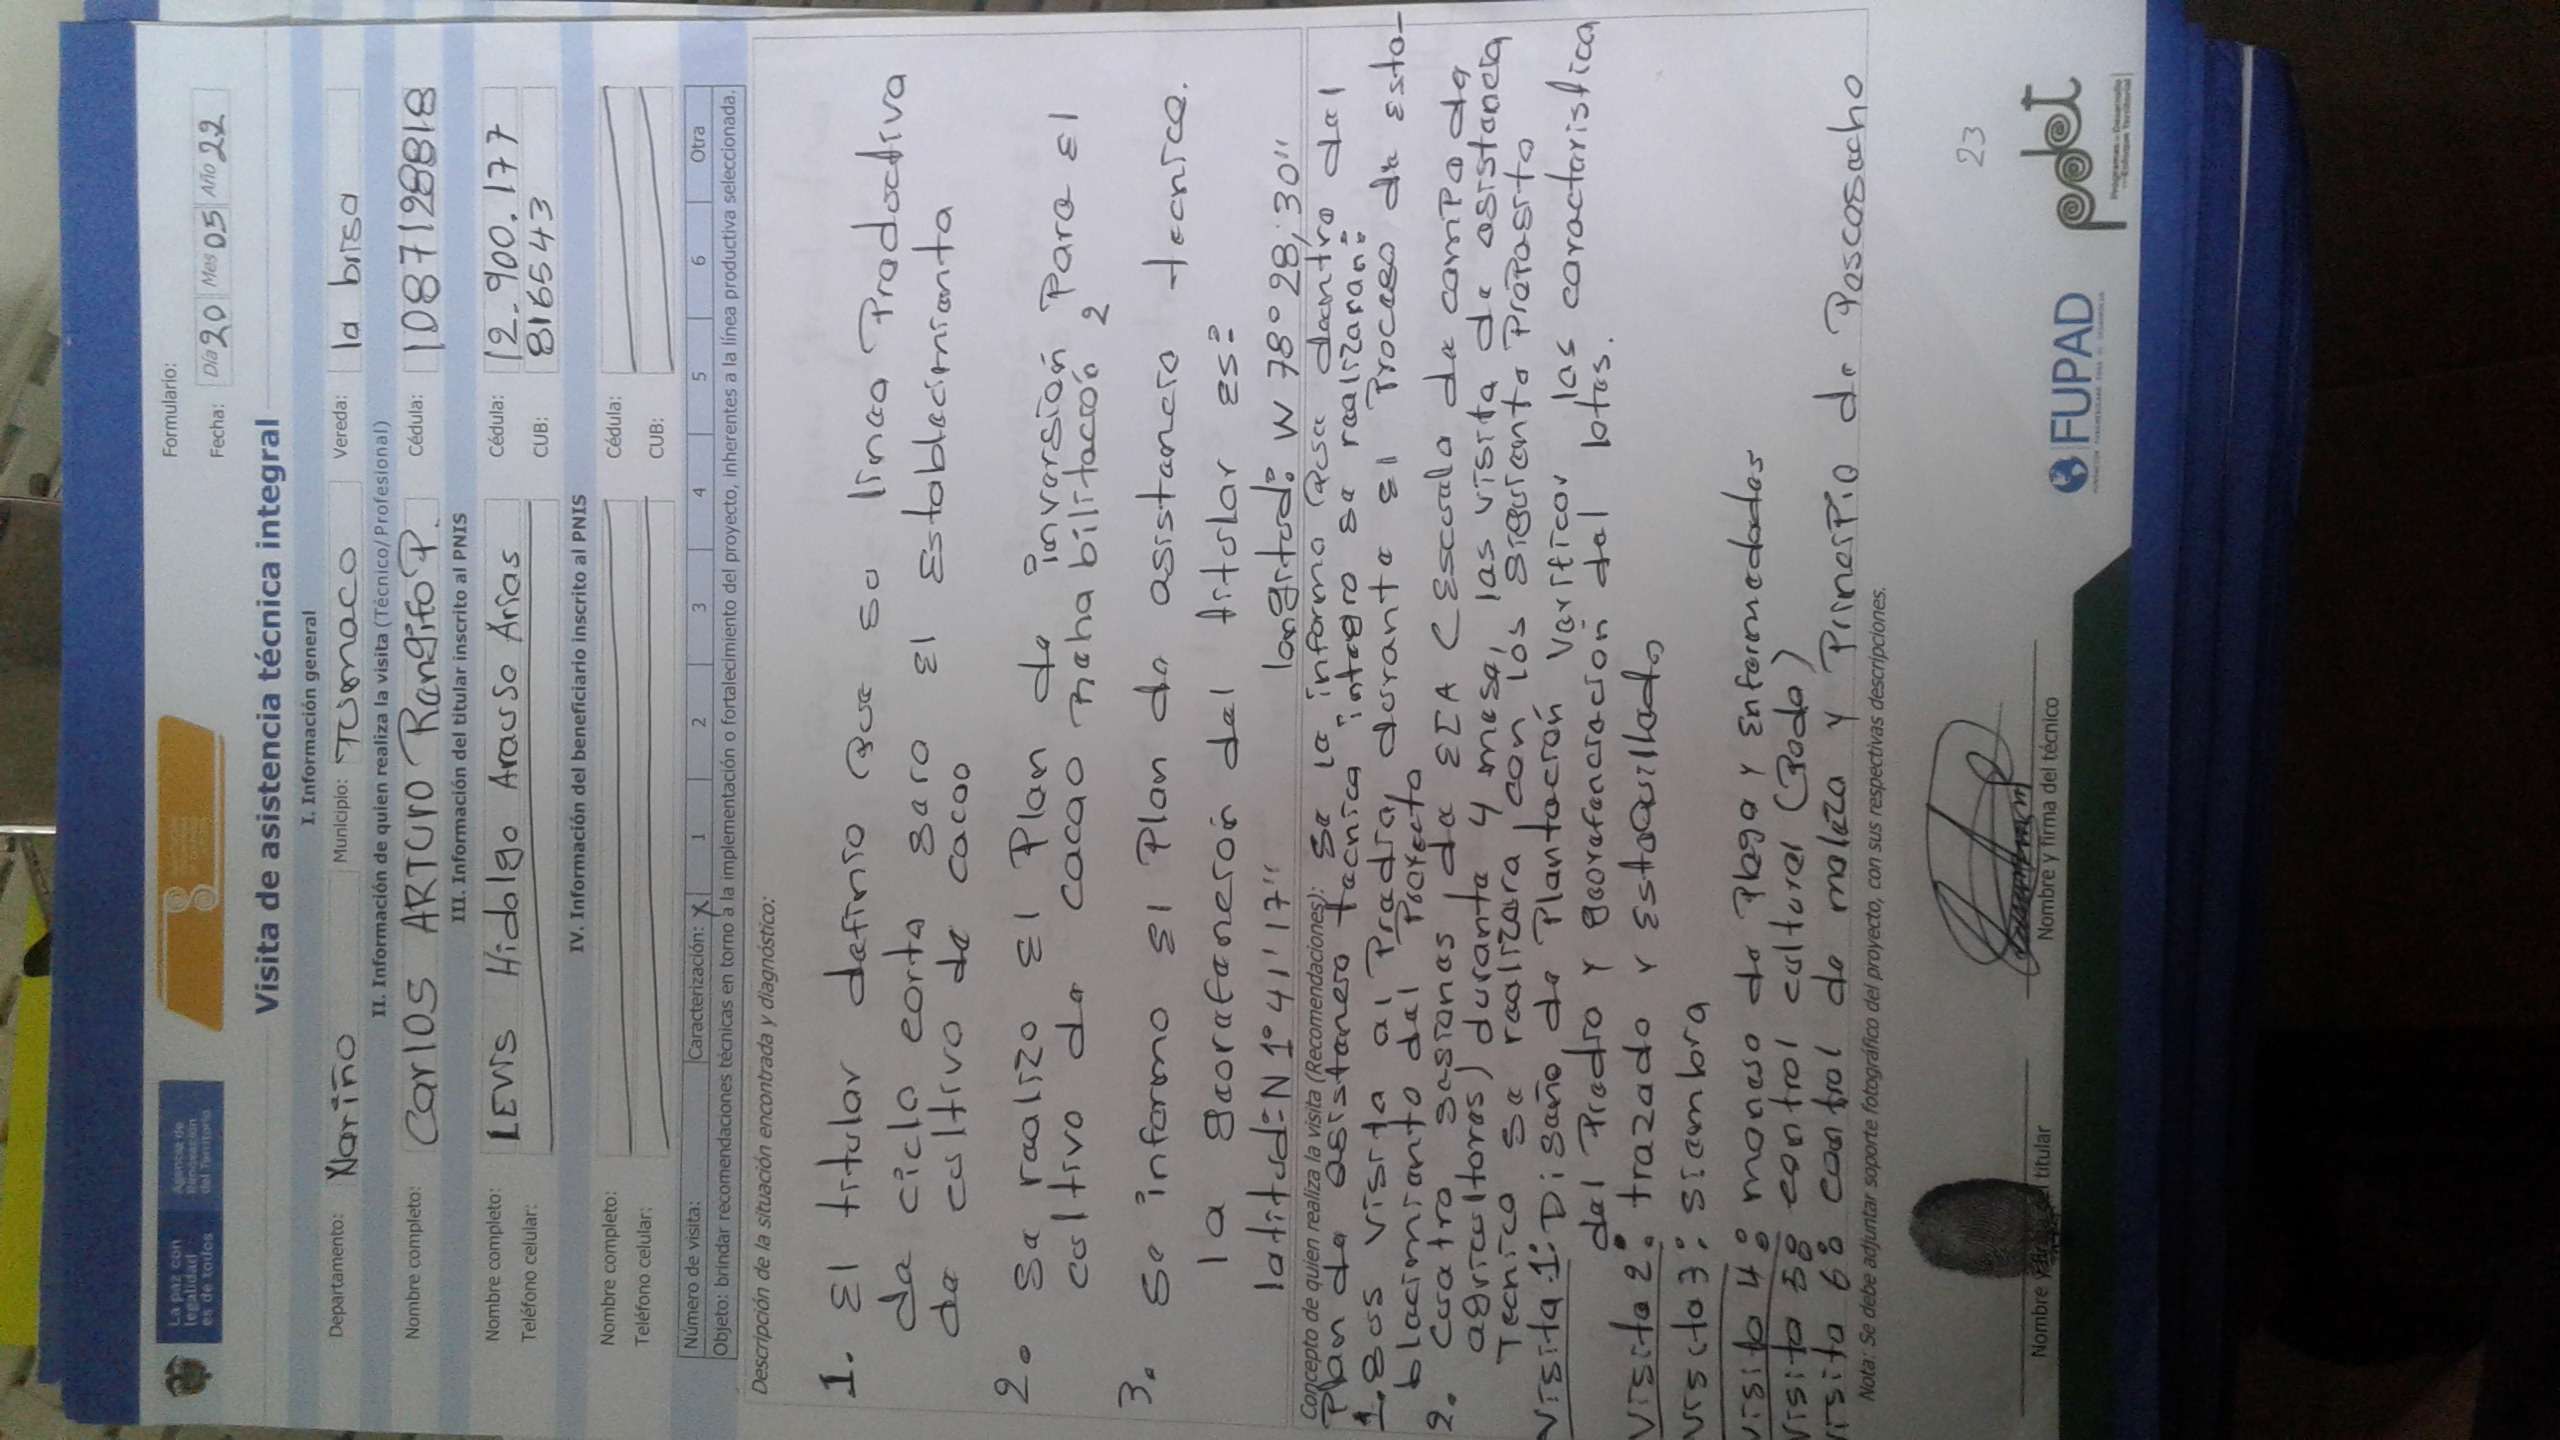 La paz con
legalidad
es de todos
Agencia de
Renovación
del Territorio
Formulario:
Fecha: Día 20 Mes 05 Año 22
Visita de asistencia técnica integral
I. Información general
Departamento: Nariño Municipio: Tumaco Vereda: la brisa
II. Información de quien realiza la visita (Técnico/Profesional)
Nombre completo: Carlos ARTURO Rengifo P. Cédula: 1087128818
III. Información del titular inscrito al PNIS
Nombre completo: LEVIS Hidalgo Arauso Arias Cédula: 12-900.177
Teléfono celular: CUB: 816543
IV. Información del beneficiario inscrito al PNIS
Nombre completo: Cédula:
Teléfono celular: CUB:
Número de visita: Caracterización: X 1 2 3 4 5 6 Otra
Objeto: brindar recomendaciones técnicas en torno a la implementación o fortalecimiento del proyecto, inherentes a la línea productiva seleccionada.
Descripción de la situación encontrada y diagnóstico:
1. El titular definio que su linea Productiva
de ciclo corto sara El Establecimiento
de cultivo de cacao
2. Se realizo El Plan de inversión Para El
cultivo de cacao rehabilitación 2
3. Se informo El Plan de asistencia tecnica.
la georefarención del titular es:
latitud: N 1° 41' 17" longitud: W 78° 28, 30"
Concepto de quien realiza la visita (Recomendaciones): Se la informo que dentro del
Plan de asistencia tecnica integro se realizaran:
1. Sus visita al Predio, durante El Proceso de Esta-
blecimiento del Proyecto
2. cuatro sesiones de ECA (Escuela de campo de
agricultores) durante 4 mese, las visita de asistencia
Tecnica se realizara con los siguiente Proposito
Visita 1: Diseño de Plantación Verificar las caracteristica
del Predio y georefenciación del lotes.
Visita 2: trazado y Estaquillado
Visita 3: siembra
Visita 4: manejo de Plaga y Enfermedades
Visita 5: control cultural (Poda)
Visita 6: control de maleza y Principio de Poscosecho
Nota: Se debe adjuntar soporte fotográfico del proyecto, con sus respectivas descripciones.
Nombre y firma del titular Nombre y firma del técnico
23
FUPAD
pdet
Programas de Desarrollo
con Enfoque Territorial